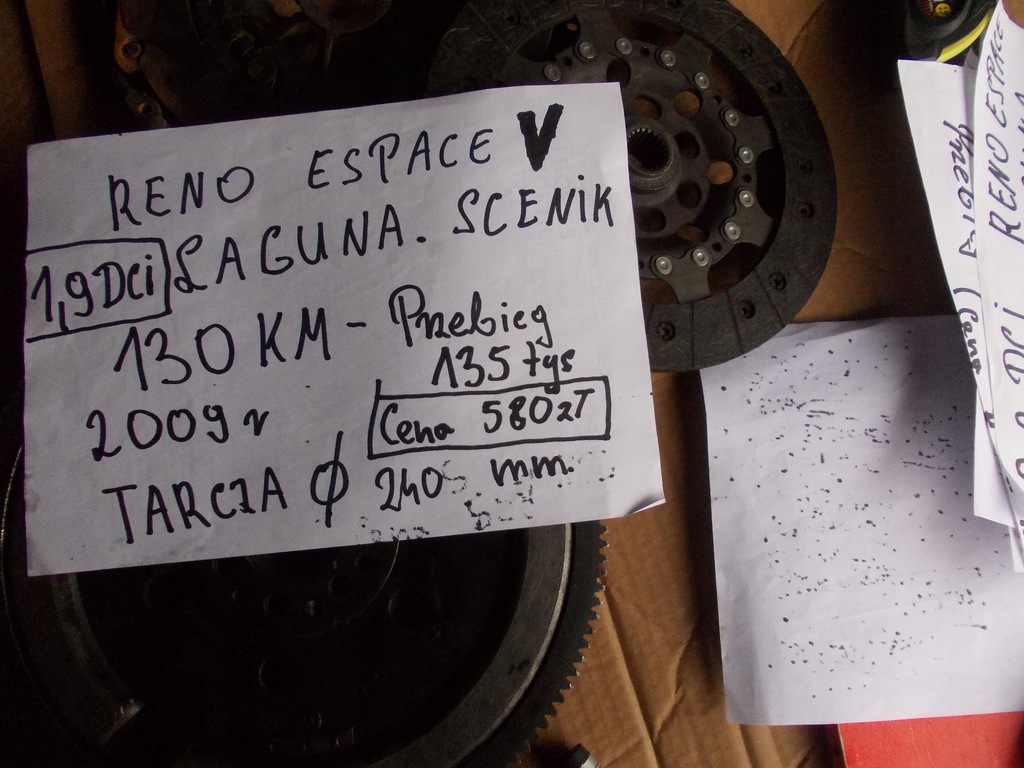 RENO ESPACE V
1,9 DCi LAGUNA. SCENiK
130 KM - Przebieg
135 tys
2009 r
Cena 580 zT
TARCZA Ø 240 mm.
RENO ESPACE
DCi